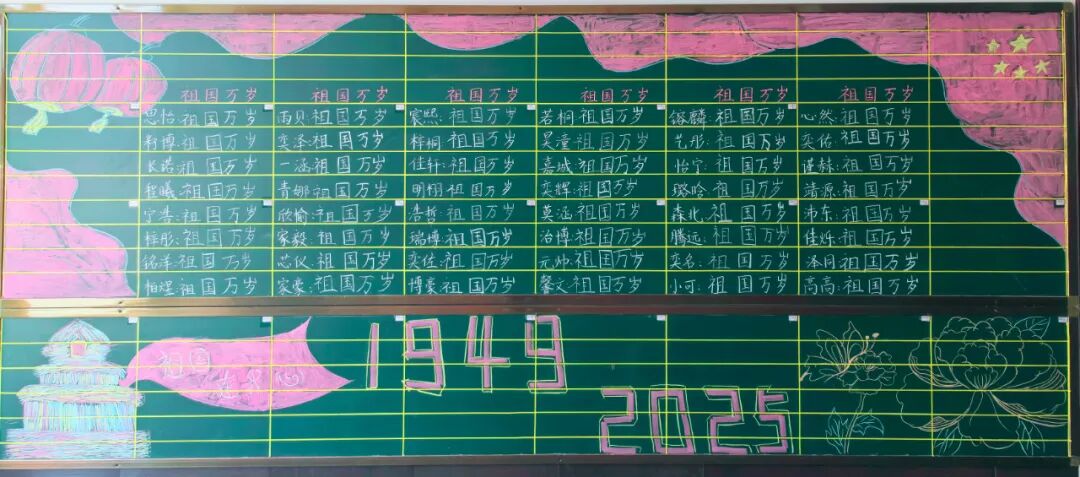 祖国万岁 祖国万岁 祖国万岁 祖国万岁 祖国万岁 祖国万岁
思怡:祖国万岁 雨贝:祖国万岁 宸熙:祖国万岁 若桐:祖国万岁 镕麟:祖国万岁 心然:祖国万岁
博:祖国万岁 奕泽:祖国万岁 梓桐:祖国万岁 昊潼:祖国万岁 艺彤:祖国万岁 奕佑:祖国万岁
长诺:祖国万岁 一涵:祖国万岁 佳轩:祖国万岁 嘉城:祖国万岁 怡宁:祖国万岁 谨赫:祖国万岁
程曦:祖国万岁 青娜:祖国万岁 明栩:祖国万岁 奕辉:祖国万岁 璐晗:祖国万岁 靖源:祖国万岁
宇浩:祖国万岁 欣愉:祖国万岁 浩哲:祖国万岁 莫涵:祖国万岁 森北:祖国万岁 沛东:祖国万岁
梓彤:祖国万岁 家毅:祖国万岁 瑞博:祖国万岁 治博:祖国万岁 腾远:祖国万岁 佳烁:祖国万岁
铭洋:祖国万岁 芯仪:祖国万岁 奕佐:祖国万岁 元帅:祖国万岁 奕名:祖国万岁 泽同:祖国万岁
柏煜:祖国万岁 家豪:祖国万岁 博豪:祖国万岁 馨文:祖国万岁 小可:祖国万岁 高高:祖国万岁
祖国
在我心中
1949
2025